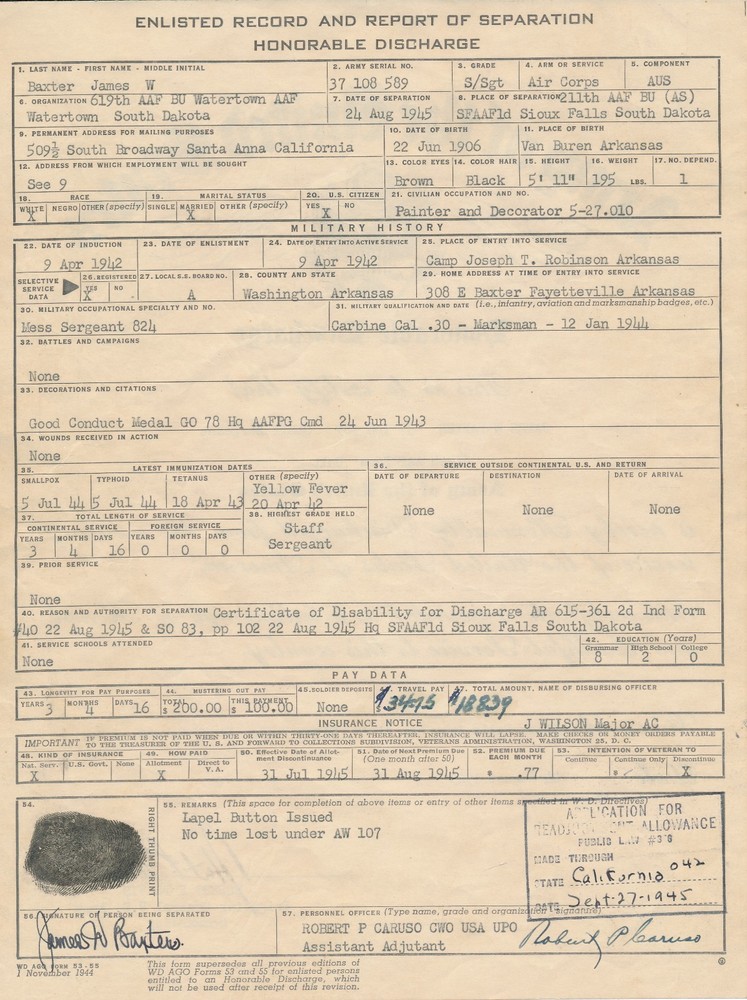 ENLISTED RECORD AND REPORT OF SEPARATION
HONORABLE DISCHARGE
1. LAST NAME - FIRST NAME - MIDDLE INITIAL
Baxter James W
2. ARMY SERIAL NO.
37 108 589
3. GRADE
S/Sgt
4. ARM OR SERVICE
Air Corps
5. COMPONENT
AUS
6. ORGANIZATION 619th AAF BU Watertown AAF
Watertown South Dakota
7. DATE OF SEPARATION
24 Aug 1945
8. PLACE OF SEPARATION 211th AAF BU (AS)
SFAAFld Sioux Falls South Dakota
9. PERMANENT ADDRESS FOR MAILING PURPOSES
509½ South Broadway Santa Anna California
10. DATE OF BIRTH
22 Jun 1906
11. PLACE OF BIRTH
Van Buren Arkansas
12. ADDRESS FROM WHICH EMPLOYMENT WILL BE SOUGHT
See 9
13. COLOR EYES
Brown
14. COLOR HAIR
Black
15. HEIGHT
5' 11"
16. WEIGHT
195 LBS.
17. NO. DEPEND.
1
18. RACE
WHITE NEGRO OTHER (specify)
X
19. MARITAL STATUS
SINGLE MARRIED OTHER (specify)
X
20. U.S. CITIZEN
YES NO
X
21. CIVILIAN OCCUPATION AND NO.
Painter and Decorator 5-27.010
MILITARY HISTORY
22. DATE OF INDUCTION
9 Apr 1942
23. DATE OF ENLISTMENT
24. DATE OF ENTRY INTO ACTIVE SERVICE
9 Apr 1942
25. PLACE OF ENTRY INTO SERVICE
Camp Joseph T. Robinson Arkansas
SELECTIVE SERVICE DATA
26. REGISTERED
YES NO
X
27. LOCAL S.S. BOARD NO.
A
28. COUNTY AND STATE
Washington Arkansas
29. HOME ADDRESS AT TIME OF ENTRY INTO SERVICE
308 E Baxter Fayetteville Arkansas
30. MILITARY OCCUPATIONAL SPECIALTY AND NO.
Mess Sergeant 824
31. MILITARY QUALIFICATION AND DATE (i.e., infantry, aviation and marksmanship badges, etc.)
Carbine Cal .30 - Marksman - 12 Jan 1944
32. BATTLES AND CAMPAIGNS
None
33. DECORATIONS AND CITATIONS
Good Conduct Medal GO 78 Hq AAFPG Cmd 24 Jun 1943
34. WOUNDS RECEIVED IN ACTION
None
35. LATEST IMMUNIZATION DATES
SMALLPOX
5 Jul 44
TYPHOID
5 Jul 44
TETANUS
18 Apr 43
OTHER (specify)
Yellow Fever
20 Apr 42
36. SERVICE OUTSIDE CONTINENTAL U.S. AND RETURN
DATE OF DEPARTURE
None
DESTINATION
None
DATE OF ARRIVAL
None
37. TOTAL LENGTH OF SERVICE
CONTINENTAL SERVICE FOREIGN SERVICE
YEARS MONTHS DAYS YEARS MONTHS DAYS
3 4 16 0 0 0
38. HIGHEST GRADE HELD
Staff
Sergeant
39. PRIOR SERVICE
None
40. REASON AND AUTHORITY FOR SEPARATION Certificate of Disability for Discharge AR 615-361 2d Ind Form
#40 22 Aug 1945 & SO 83, pp 102 22 Aug 1945 Hq SFAAFld Sioux Falls South Dakota
41. SERVICE SCHOOLS ATTENDED
None
42. EDUCATION (Years)
Grammar High School College
8 2 0
PAY DATA
43. LONGEVITY FOR PAY PURPOSES
YEARS 3 MONTHS 4 DAYS 16
44. MUSTERING OUT PAY
TOTAL THIS PAYMENT
$ 200.00 $ 100.00
45. SOLDIER DEPOSITS
None
46. TRAVEL PAY
$ 3475
47. TOTAL AMOUNT, NAME OF DISBURSING OFFICER
$18839
J WILSON Major AC
INSURANCE NOTICE
IMPORTANT IF PREMIUM IS NOT PAID WHEN DUE OR WITHIN THIRTY-ONE DAYS THEREAFTER, INSURANCE WILL LAPSE. MAKE CHECKS OR MONEY ORDERS PAYABLE
TO THE TREASURER OF THE U. S. AND FORWARD TO COLLECTIONS SUBDIVISION, VETERANS ADMINISTRATION, WASHINGTON 25, D. C.
48. KIND OF INSURANCE
Nat. Serv. U.S. Govt. None
X
49. HOW PAID
Allotment Direct to V. A.
X
50. Effective Date of Allotment Discontinuance
31 Jul 1945
51. Date of Next Premium Due
(One month after 50)
31 Aug 1945
52. PREMIUM DUE EACH MONTH
$ .77
53. INTENTION OF VETERAN TO
Continue Continue Only Discontinue
$ X
54.
RIGHT THUMB PRINT
55. REMARKS (This space for completion of above items or entry of other items specified in W. D. Directives)
Lapel Button Issued
No time lost under AW 107
APPLICATION FOR
ALLOWANCE
PUBLIC LAW
MADE THROUGH
STATE California 042
DATE Sept-27-1945
56. SIGNATURE OF PERSON BEING SEPARATED
James W Baxter
57. PERSONNEL OFFICER (Type name, grade and organization - signature)
ROBERT P CARUSO CWO USA UPO
Assistant Adjutant
Robert P Caruso
WD AGO FORM 53-55
1 November 1944
This form supersedes all previous editions of
WD AGO Forms 53 and 55 for enlisted persons
entitled to an Honorable Discharge, which
will not be used after receipt of this revision.